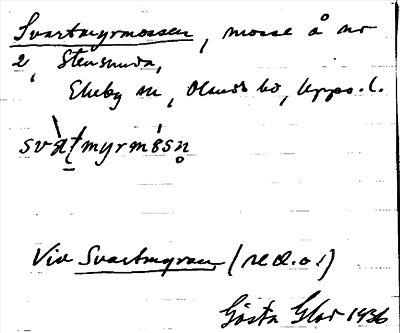 Svartmyrmossen, mosse å nr
2, Stensunda,
Ekeby sn, Olands hd, Upps. l.
svàʈmyrmósn̥
Vid Svartmyran (se d. o.)
Gösta Glad 1936